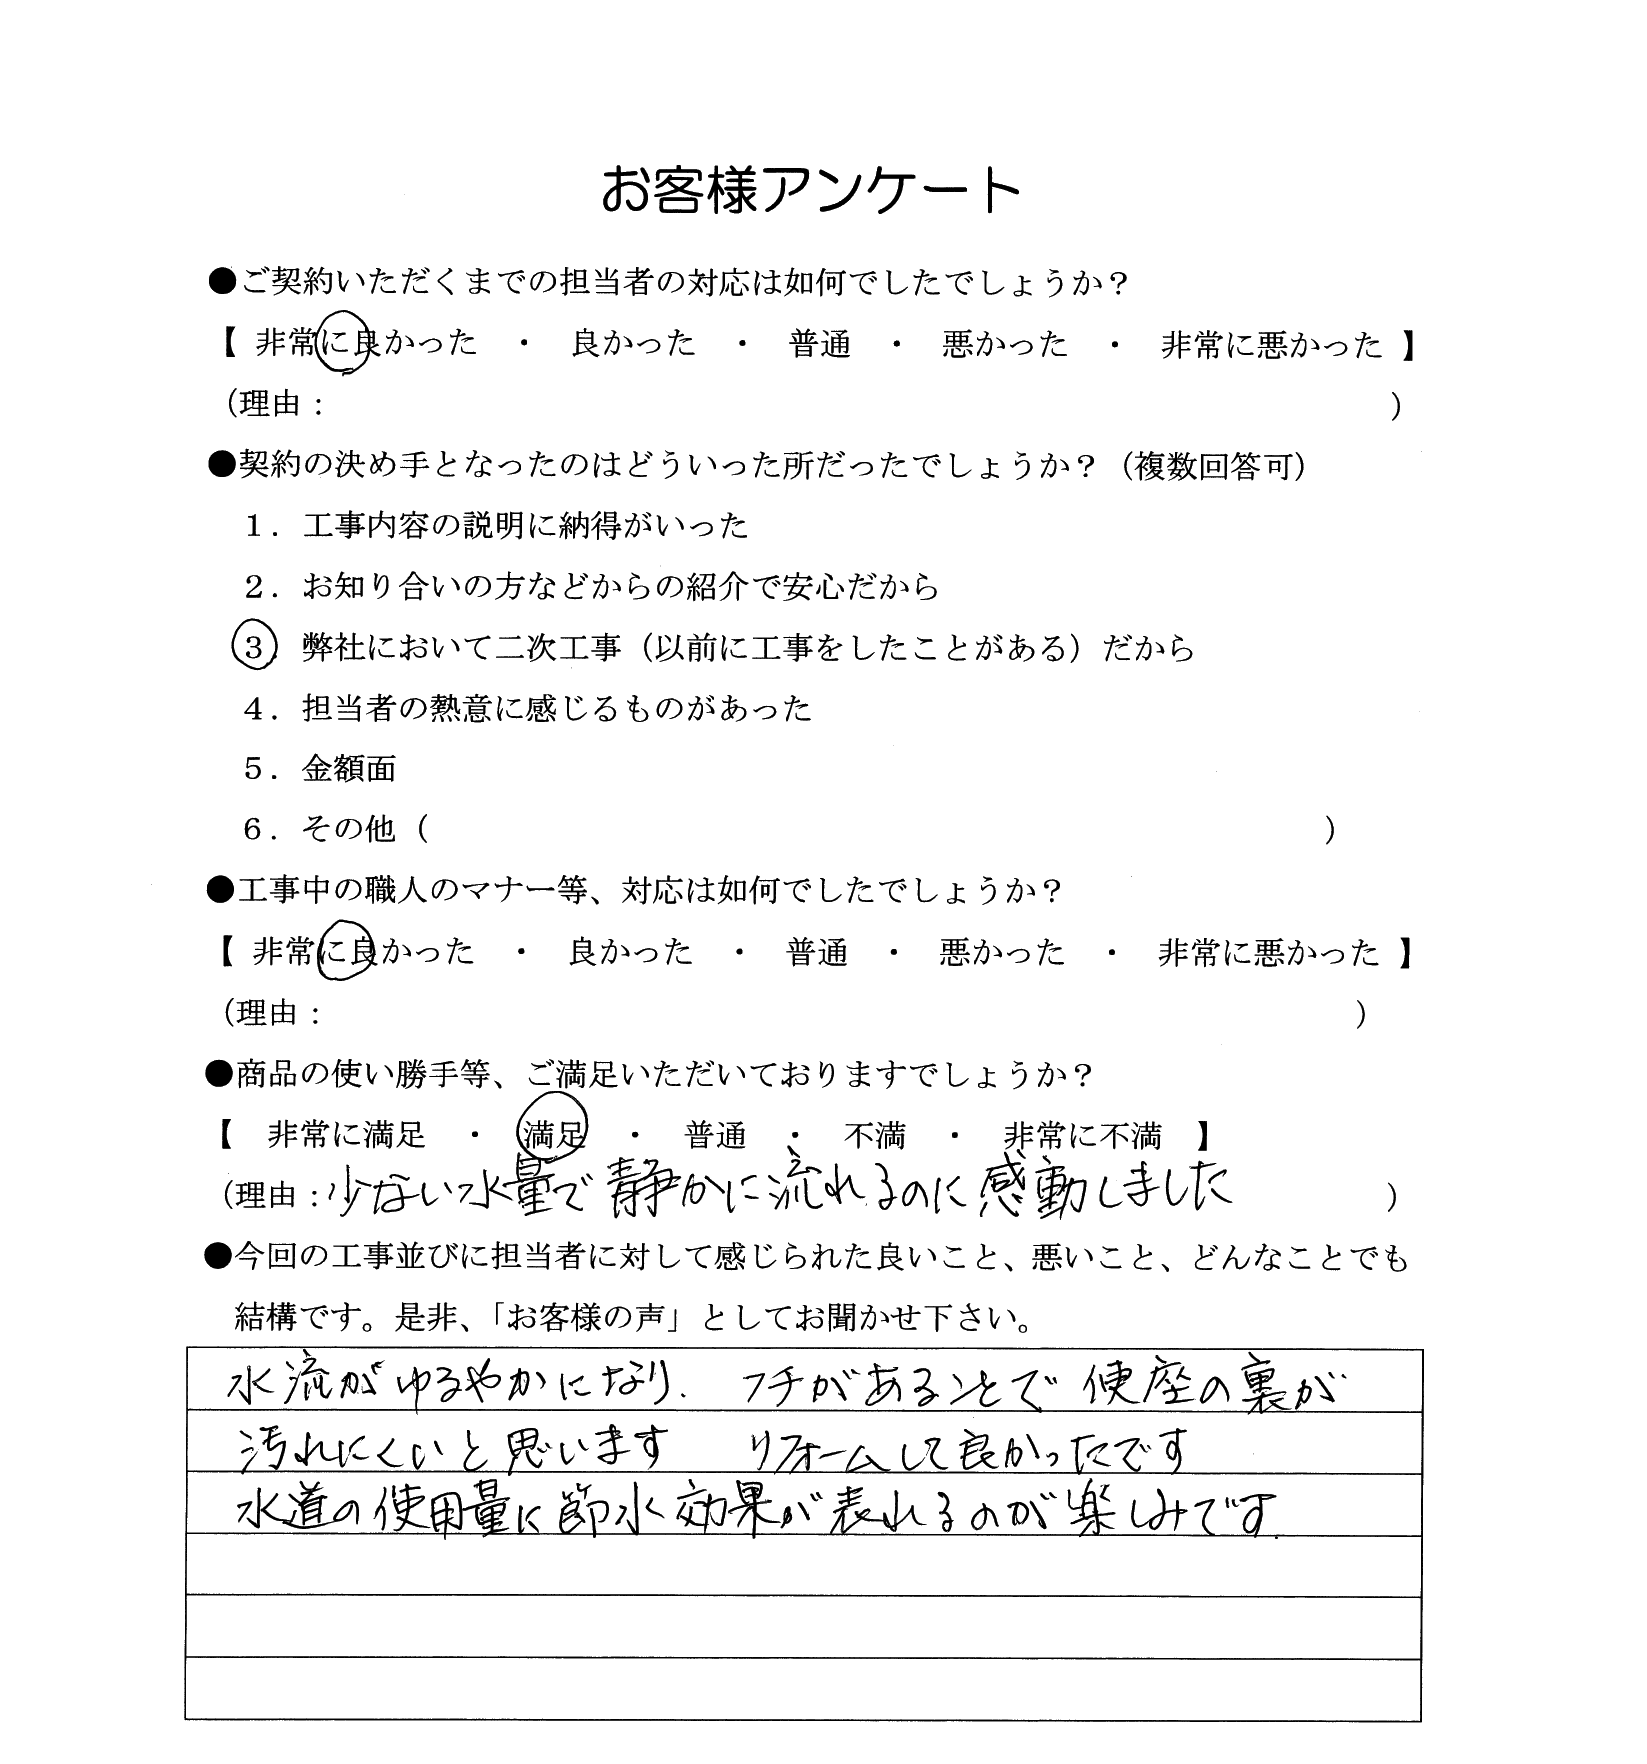 お客様アンケート
●ご契約いただくまでの担当者の対応は如何でしたでしょうか？
【 非常に良かった ・ 良かった ・ 普通 ・ 悪かった ・ 非常に悪かった 】
（理由： ）
●契約の決め手となったのはどういった所だったでしょうか？（複数回答可）
１．工事内容の説明に納得がいった
２．お知り合いの方などからの紹介で安心だから
３．弊社において二次工事（以前に工事をしたことがある）だから
４．担当者の熱意に感じるものがあった
５．金額面
６．その他（ ）
●工事中の職人のマナー等、対応は如何でしたでしょうか？
【 非常に良かった ・ 良かった ・ 普通 ・ 悪かった ・ 非常に悪かった 】
（理由： ）
●商品の使い勝手等、ご満足いただいておりますでしょうか？
【 非常に満足 ・ 満足 ・ 普通 ・ 不満 ・ 非常に不満 】
（理由：少ない水量で静かに流れるのに感動しました ）
●今回の工事並びに担当者に対して感じられた良いこと、悪いこと、どんなことでも
結構です。是非、「お客様の声」としてお聞かせ下さい。
水流がゆるやかになり、フチがあることで便座の裏が
汚れにくいと思います　リフォームして良かったです
水道の使用量に節水効果が表れるのが楽しみです.